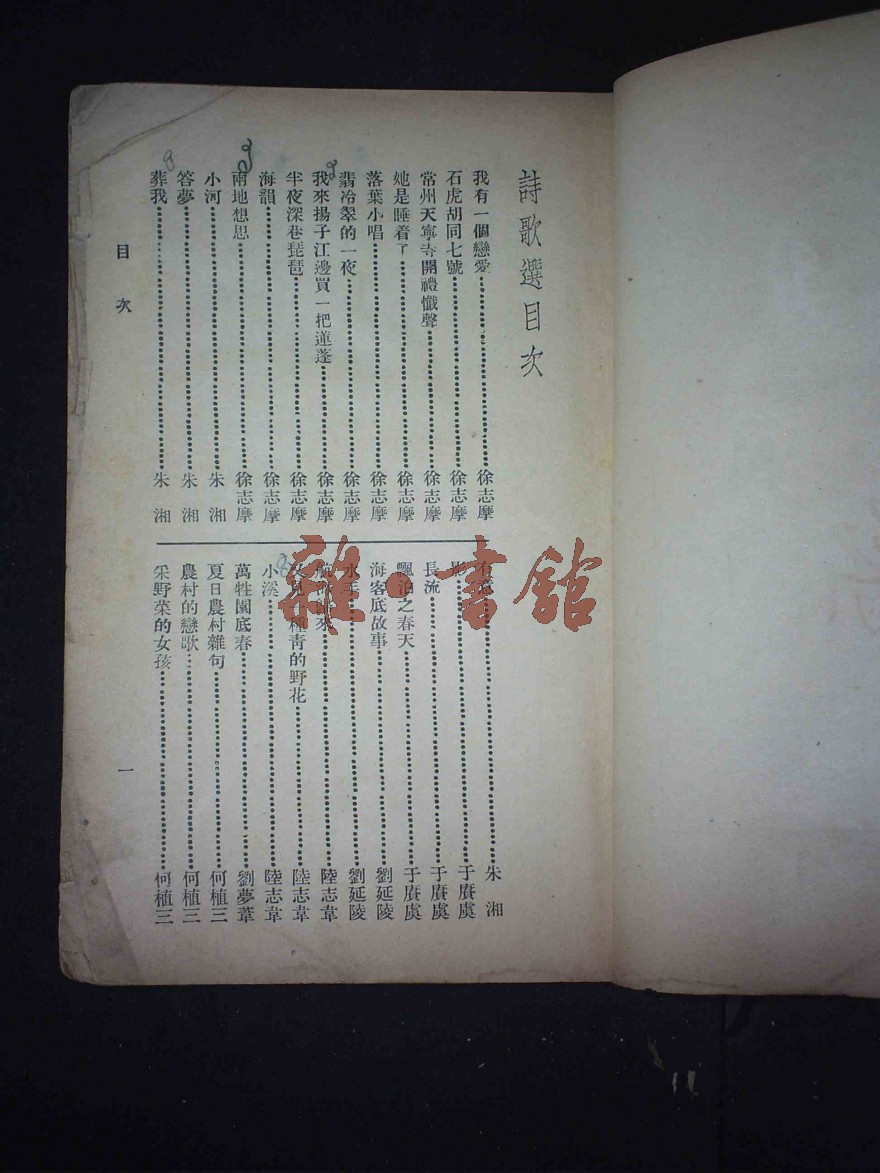 詩歌選目次
我有一個戀愛⋯⋯徐志摩
石虎胡同七號⋯⋯徐志摩
常州天寧寺聞禮懺聲⋯⋯徐志摩
她是睡着了⋯⋯徐志摩
落葉小唱⋯⋯徐志摩
翡冷翠的一夜⋯⋯徐志摩
我來揚子江邊買一把蓮蓬⋯⋯徐志摩
半夜深巷琵琶⋯⋯徐志摩
海韻⋯⋯徐志摩
兩地想思⋯⋯徐志摩
小河⋯⋯朱湘
答夢⋯⋯朱湘
葬我⋯⋯朱湘
有⋯⋯朱湘
影⋯⋯于賡虞
長流⋯⋯于賡虞
飄泊之春天⋯⋯于賡虞
海客底故事⋯⋯劉延陵
水手⋯⋯劉延陵
航海歸來⋯⋯陸志韋
又見一種靑的野花⋯⋯陸志韋
小溪⋯⋯陸志韋
萬牲園底春⋯⋯劉夢葦
夏日農村雜句⋯⋯何植三
農村的戀歌⋯⋯何植三
采野菜的女孩⋯⋯何植三
目次
一
雜·書館